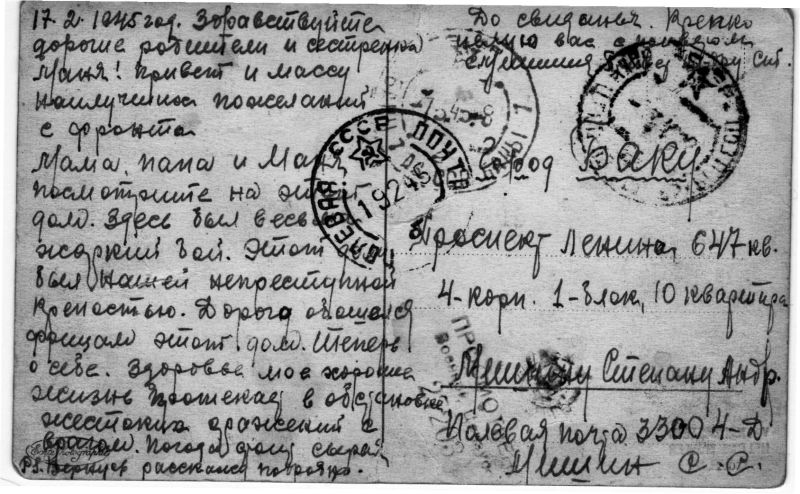 17. 2. 1945 год. Здравствуйте
дорогие родители и сестренка
Маня! Привет и массу
наилучших пожеланий
с фронта
Мама, папа и Маня,
посмотрите на этот
дом. Здесь был весьма
жаркий бой. Этот дом
был нашей непреступной
крепостью. Дорого обошелся
фрицам этот дом. Теперь
о себе. Здоровье мое хорошее
жизнь протекает в обстановке
жестоких сражений с
врагом. Погода стоит сырая
P.S. Вернусь расскажу подробно.
До свиданья. Крепко
целую вас с приветом
ПОЛЕВАЯ СССР ПОЧТА
19 2 45
город Баку
Проспект Ленина, 647 кв.
4-корп. 1-блок, 10 квартира
Мишину Степану Андр.
Полевая почта 33004-Д
Мишин С. С.